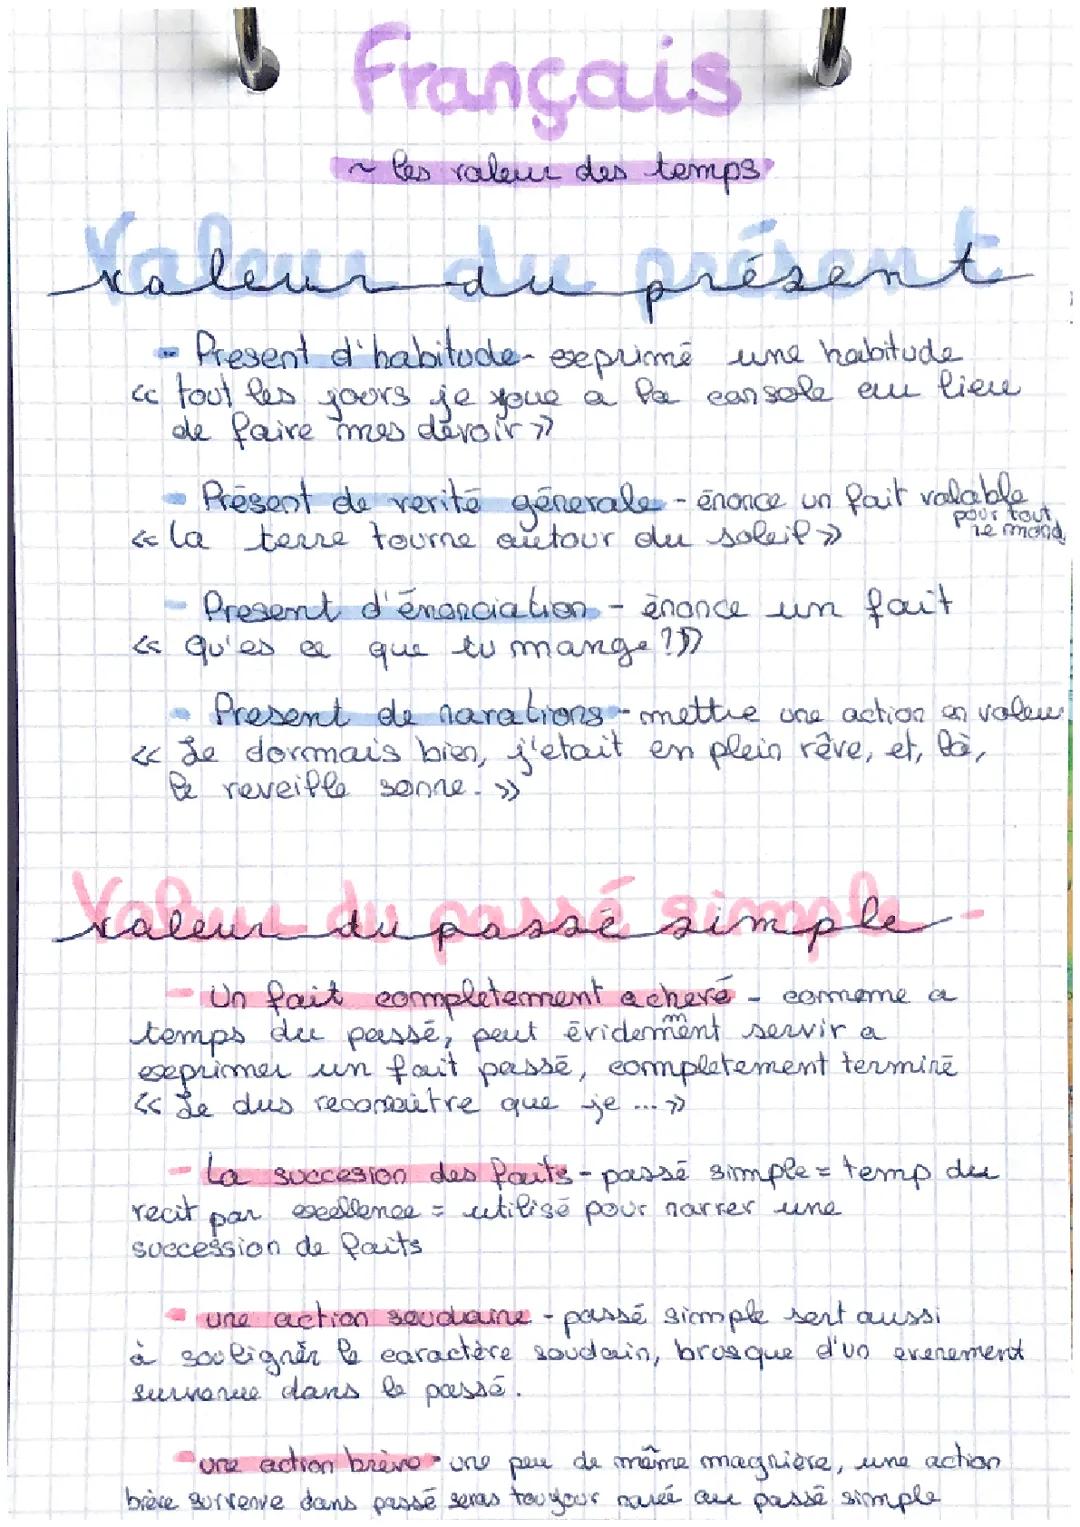 Français
~ les valeur des temps
Valeur du présent
- Present d'habitude - exprimé une habitude
<< tout les jours je joue a la console au lieu
de faire mes devoir >>
- Présent de verité génerale - énonce un fait valable
pour tout
le monde
<< la terre tourne autour du soleil >>
- Present d'énonciation - énonce un fait
<< Qu'es ce que tu mange ? >>
- Present de narations - mettre une action en valeur
<< Je dormais bien, j'etait en plein rêve, et, là,
le reveille sonne. >>
Valeur du passé simple -
- Un fait completement achevé - comeme a
temps du passé, peut évidemment servir a
exprimer un fait passé, completement terminé
<< Je dus reconnaitre que je ... >>
- La succesion des faits - passé simple = temp du
recit par excellence = utilisé pour narrer une
succession de faits
- une action soudaine - passé simple sert aussi
à souligner le caractère soudain, brusque d'un evenement
survenue dans le passé.
- une action brève - une peu de même magnière, une action
brève survenve dans passé seras toujour narré au passé simple